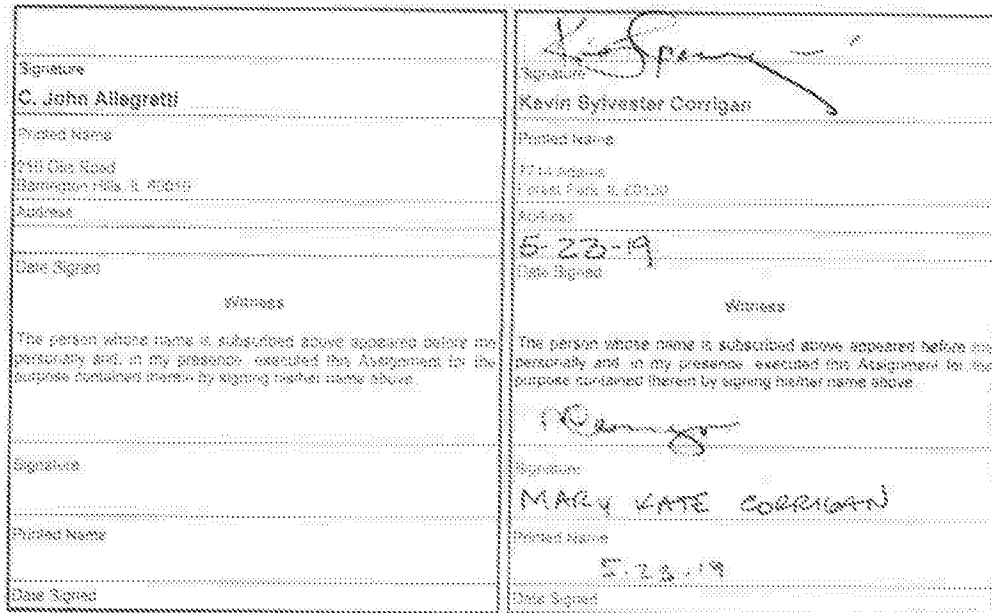 Signature
C. John Allegretti
Printed Name
Road
Barrington Hills, IL 60010
Address
Date Signed
Witness
The person whose name is subscribed above appeared before me
personally and, in my presence, executed this Assignment for the
purpose contained therein by signing his/her name above.
Signature
Printed Name
Date Signed
Signature
Kevin Sylvester Corrigan
Printed Name
Adams
Forest Park, IL 60130
Address
5-23-19
Date Signed
Witness
The person whose name is subscribed above appeared before me
personally and, in my presence, executed this Assignment for the
purpose contained therein by signing his/her name above.
Signature
MARY KATE CORRIGAN
Printed Name
5-23-19
Date Signed